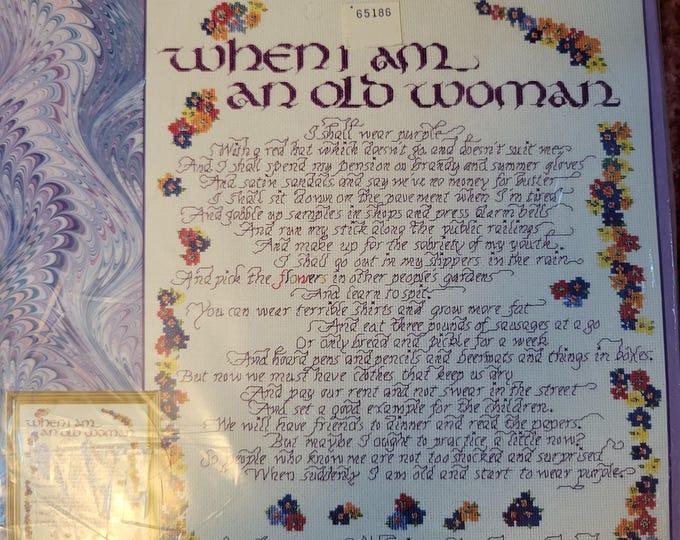 65186
When I am
an old woman
I shall wear purple
With a red hat which doesn't go, and doesn't suit me,
And I shall spend my pension on brandy and summer gloves
And satin sandals, and say we've no money for butter.
I shall sit down on the pavement when I'm tired
And gobble up samples in shops and press alarm bells
And run my stick along the public railings
And make up for the sobriety of my youth.
I shall go out in my slippers in the rain
And pick the flowers in other people's gardens
And learn to spit.
You can wear terrible shirts and grow more fat
And eat three pounds of sausages at a go
Or only bread and pickle for a week
And hoard pens and pencils and beermats and things in boxes.
But now we must have clothes that keep us dry
And pay our rent and not swear in the street
And set a good example for the children.
We will have friends to dinner and read the papers.
But maybe I ought to practice a little now?
So people who know me are not too shocked and surprised
When suddenly I am old and start to wear purple.
When I am
an old woman